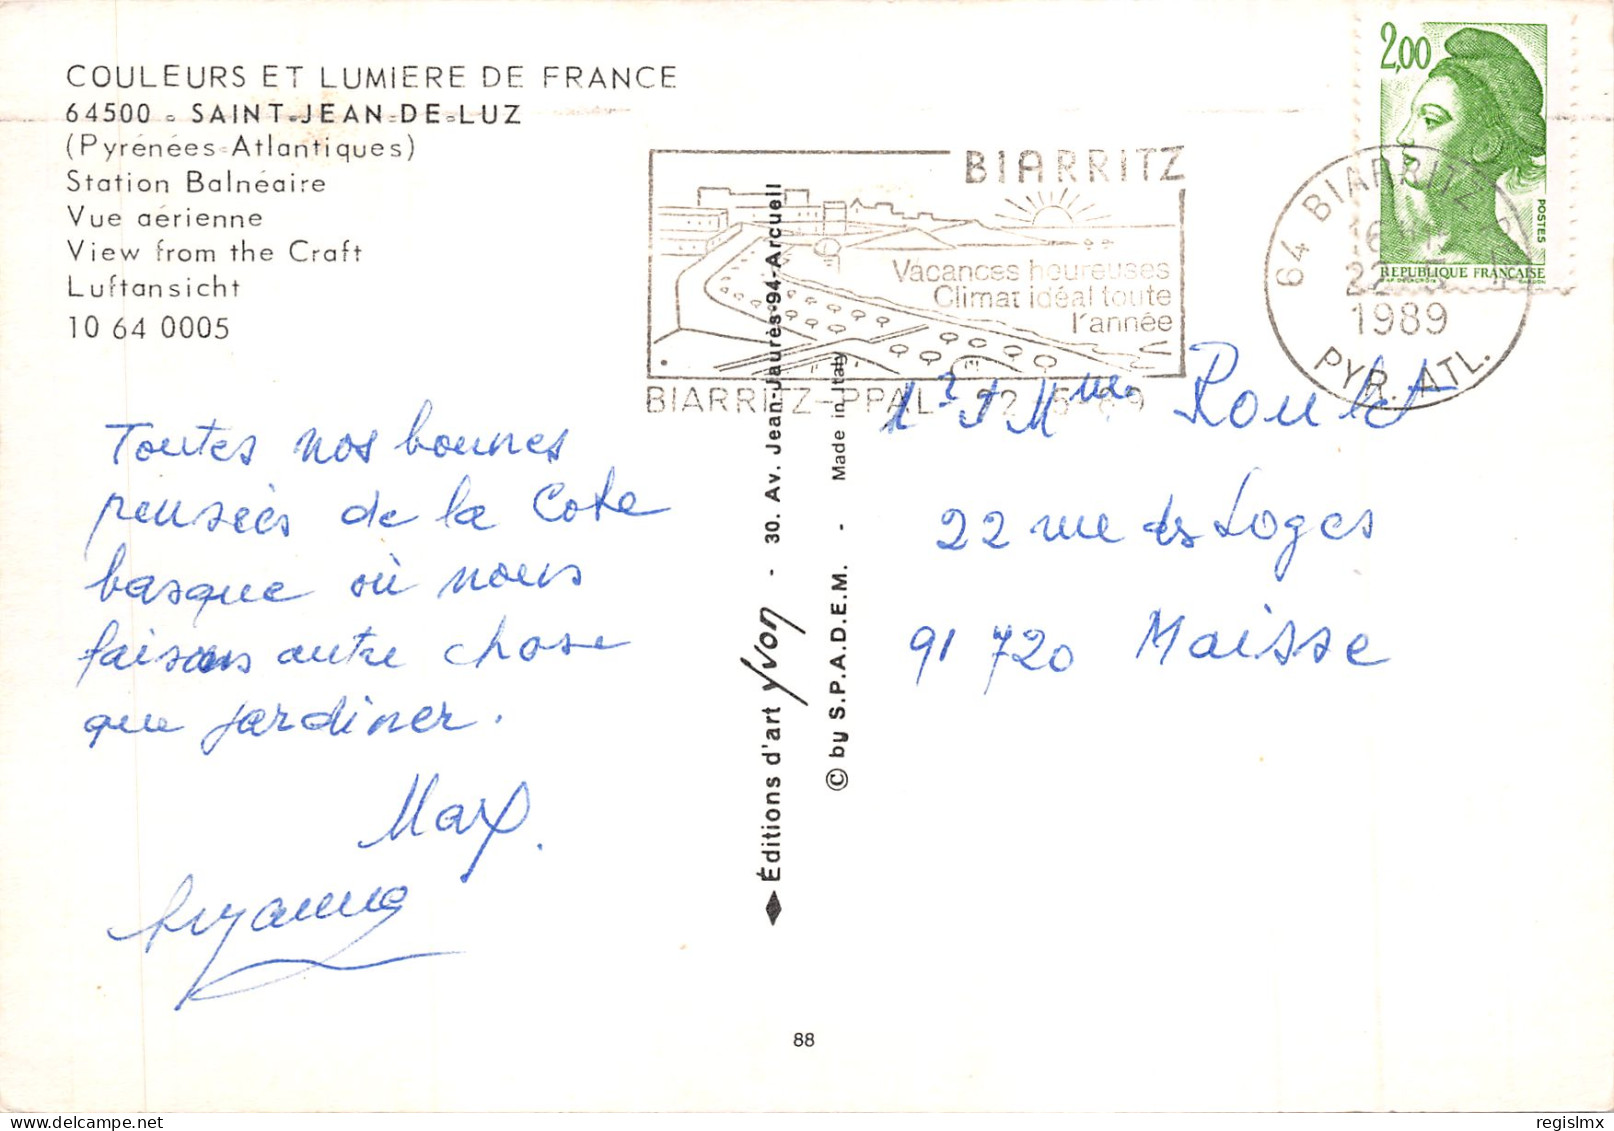 COULEURS ET LUMIERE DE FRANCE
64500 - SAINT-JEAN-DE-LUZ
(Pyrénées-Atlantiques)
Station Balnéaire
Vue aérienne
View from the Craft
Luftansicht
10 64 0005
Toutes nos bonnes
pensées de la Cote
basque où nous
faisons autre chose
que jardiner.
Max.
Suzanne
Éditions d'art Yvon - 30. Av. Jean-Jaurès-94-Arcueil
© by S.P.A.D.E.M. - Made in Italy
88
BIARRITZ
Vacances heureuses
Climat idéal toute
l'année
BIARRITZ-PPAL 22-5-89
2,00
POSTES
REPUBLIQUE FRANÇAISE
64 BIARRITZ
16 H
22-5
1989
PYR. ATL.
Mr et Mme Roulet
22 rue des Loges
91 720 Maisse
regislmx